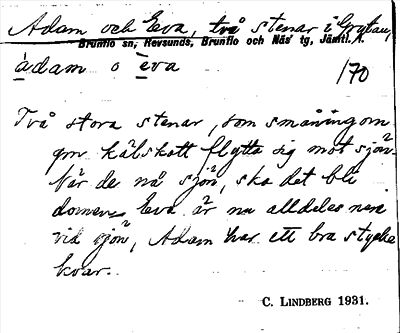 Adam och Eva, två stenar i Grytan,
Brunflo sn, Revsunds, Brunflo och Näs' tg, Jämtl. l.
àdam o èva 170
Två stora stenar, som småningom
gm kälskott flytta sig mot sjön.
När de nå sjön, ska det bli
domen. Eva är nu alldeles nere
vid sjön, Adam har ett bra stycke
kvar.
C. LINDBERG 1931.